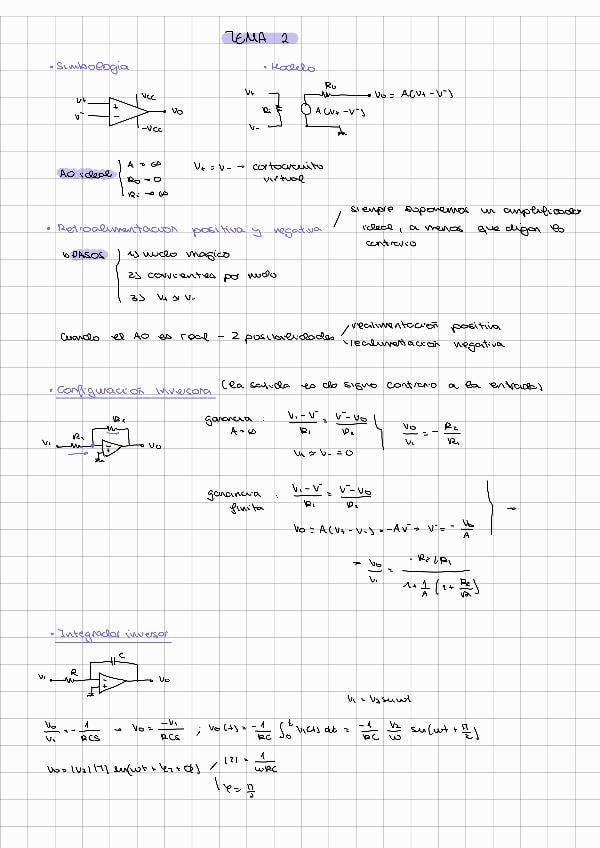 TEMA 2
• Simbología
• Modelo
V+ V- + - VCC -VCC VO
V+ V- Ri Ro A(V+ - V-) VO = A(V+ - V-)
AO ideal
A = ∞
Ro → 0
Ri → ∞
V+ = V- → cortocircuito
virtual
• Retroalimentación positiva y negativa
siempre suponemos un amplificador
ideal, a menos que digan lo
contrario
PASOS
1) nudo mágico
2) corrientes por nudo
3) V+ ≈ V-
Cuando el AO es real - 2 posibilidades
realimentación positiva
realimentación negativa
• Configuración inversora (la salida es de signo contrario a la entrada)
Vi R1 R2 - + VO
ganancia : A = ∞
(Vi - V-)/R1 = (V- - VO)/R2
V+ ≈ V- = 0
VO/Vi = - R2/R1
ganancia finita :
(Vi - V-)/R1 = (V- - VO)/R2
VO = A(V+ - V-) = -AV- → V- = - VO/A
→
= VO/Vi = (- R2/R1)/(1 + 1/A (1 + R2/R1))
• Integrador inversor
Vi R C - + VO
VO/Vi = - 1/RCS → VO = -Vi/RCS ; VO(t) = -1/RC ∫0^t Vi(t) dt = -1/RC
sen(ωt + π/2)
|T| = 1/ωRC
φ = π/2